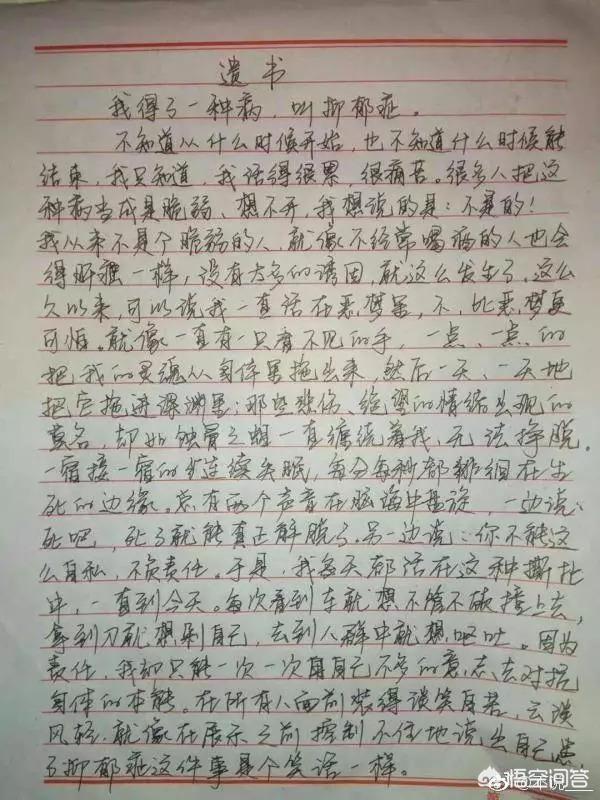 遗书
我得了一种病，叫抑郁症。
不知道从什么时候开始，也不知道什么时候能
结束，我只知道，我活得很累，很痛苦。很多人把这
种病当成是脆弱、想不开，我想说的是：不是的！
我从来不是个脆弱的人，就像不经常喝酒的人也会
得肝癌一样，没有太多的诱因，就这么发生了，这么
久以来，可以说我一直活在恶梦里，不，比恶梦更
可怕。就像一直有一只看不见的手，一点、一点的
把我的灵魂从身体里拖出来，然后一天、一天地
把它拖进深渊里；那些悲伤、绝望的情绪出现的
莫名，却如蚀骨之蛆一直缠绕着我，无法挣脱。
一宿接一宿的连续失眠，每分每秒都徘徊在生
死的边缘。总有两个声音在脑海中盘旋，一边说：
死吧，死了就能真正解脱了。另一边说：你不能这
么自私，不负责任。于是，我每天都活在这种撕扯
中，一直到今天。每次看到车就想不管不顾撞上去，
拿到刀就想剁自己，去到人群中就想呕吐。因为
责任，我却只能一次一次用自己不多的意志去对抗
身体的本能。在所有人面前装得谈笑自若，云淡
风轻，就像在展示之前控制不住地说出自己患
了抑郁症这件事是个笑话一样。
悟空问答